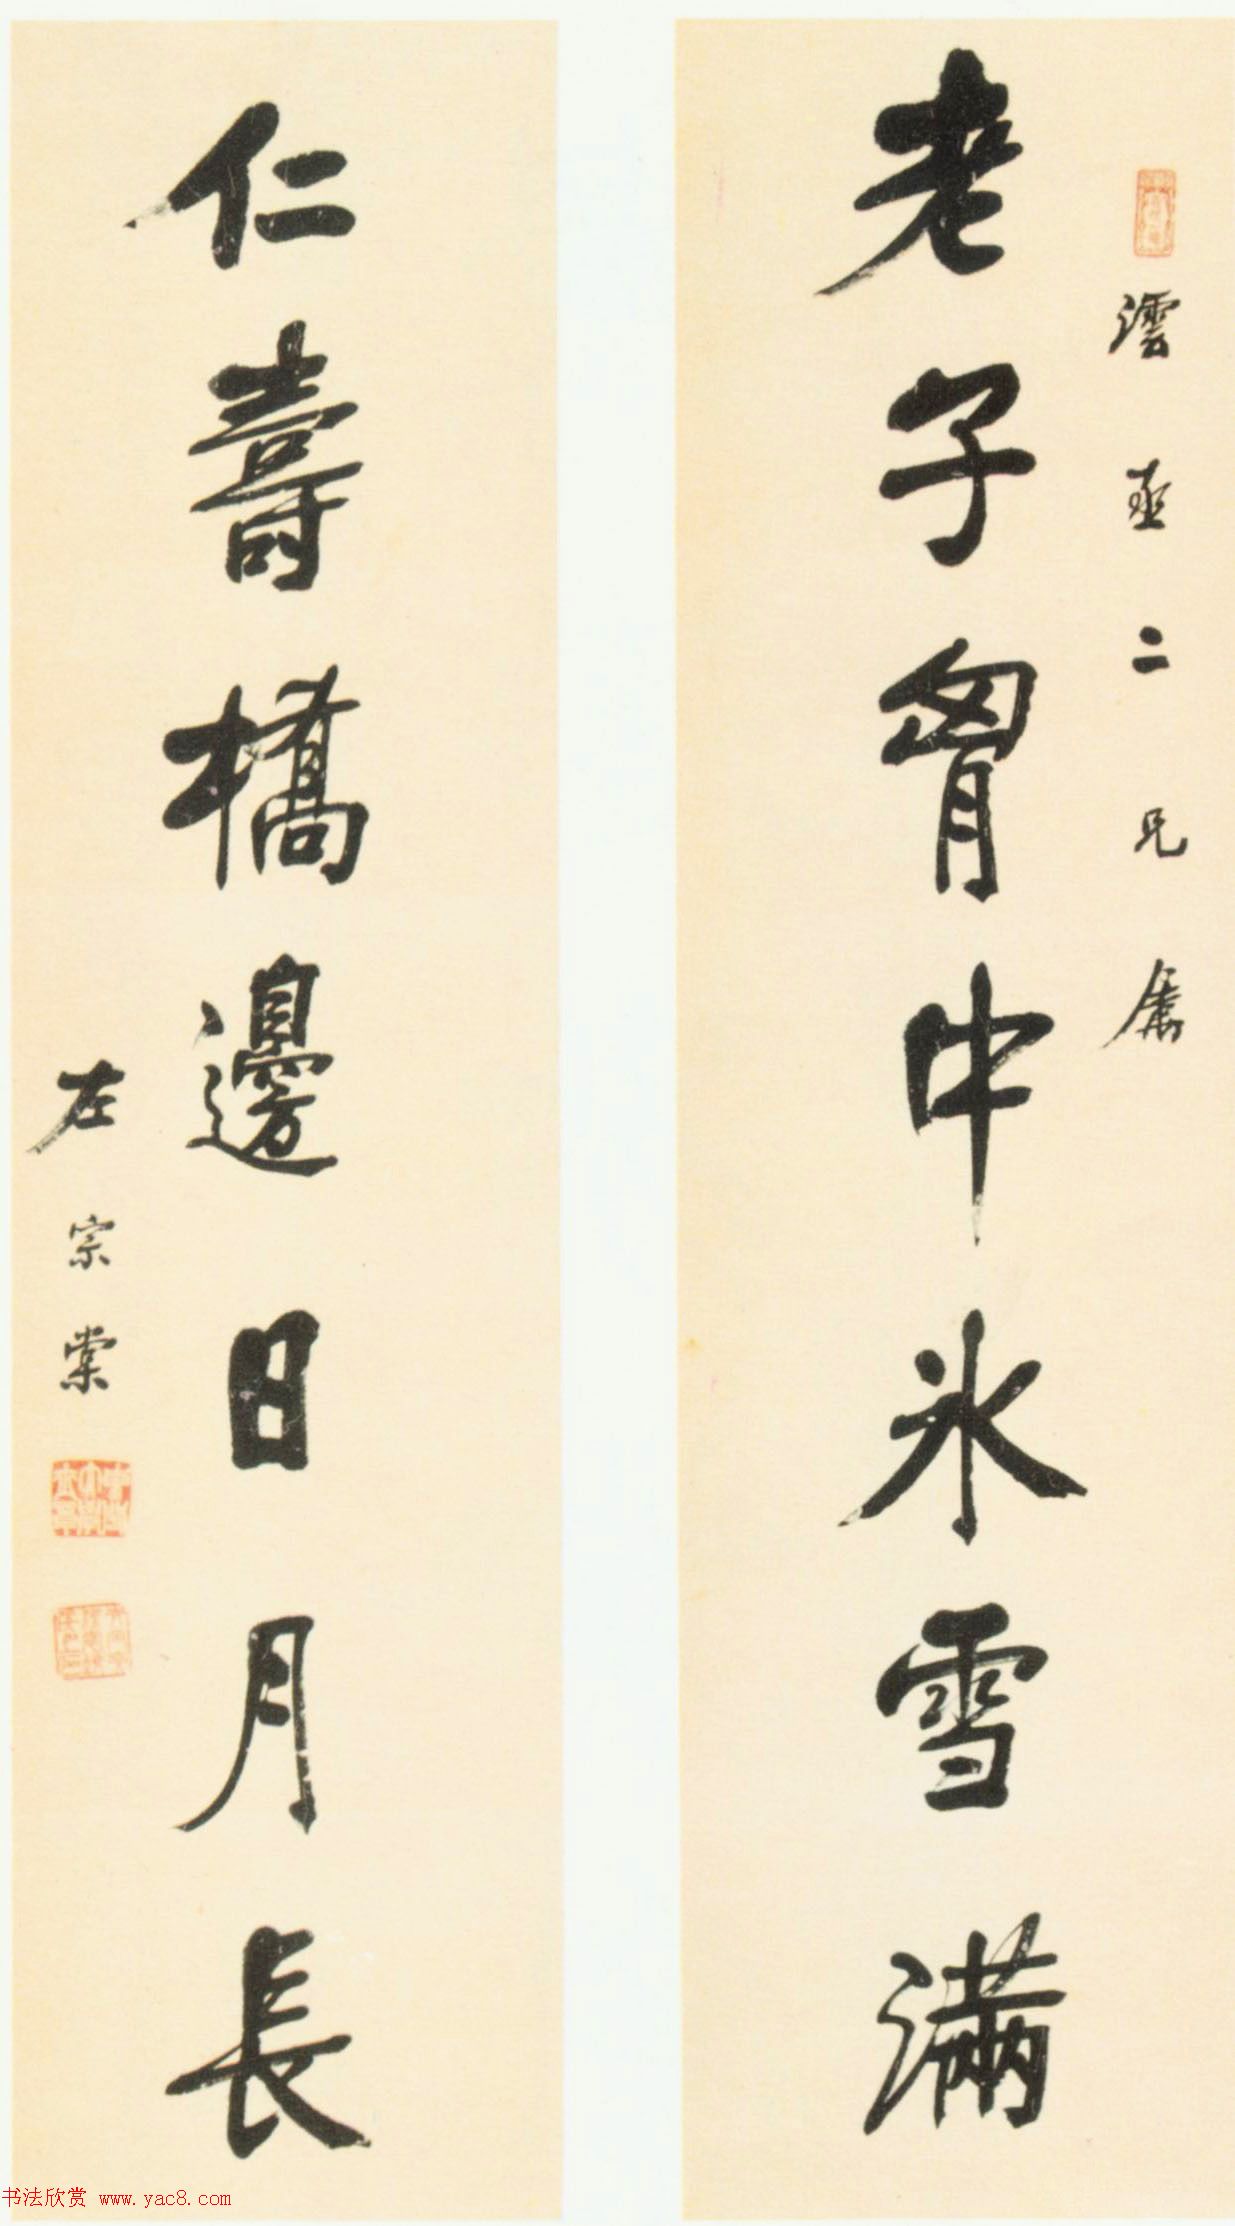 澐亟二兄屬
老子胷中冰雪滿
仁壽橋邊日月長
左宗棠
书法欣赏 www.yac8.com